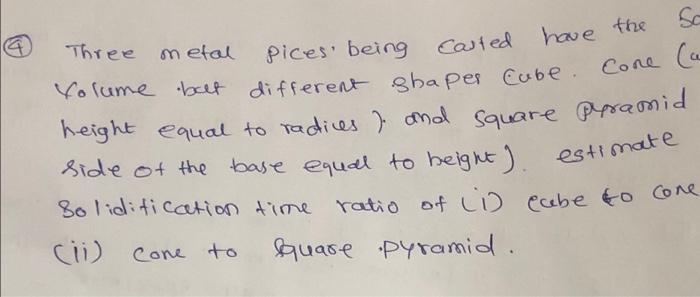 ④ Three metal pices being casted have the
Volume but different shapes cube. Cone
height equal to radices) and square pyramid
side of the base equal to height). estimate
Solidification time ratio of (i) cube to cone
(ii) cone to square pyramid.